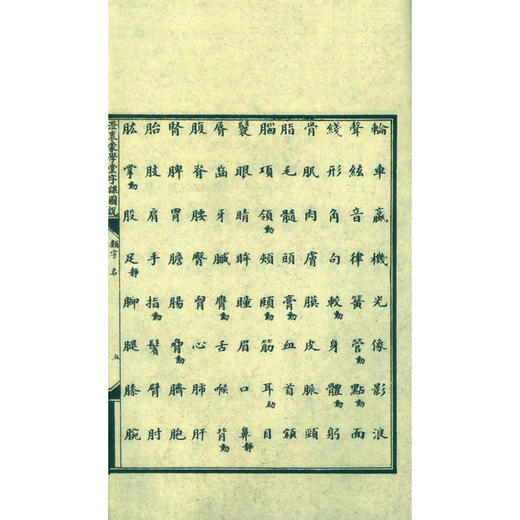 輪車蠃機光像影浪
聲絃音律簧管動點動面
綫形角句較動身體動躬
骨肌肉膚膜皮脈頸
脂毛髓頭膏動血首額
腦項領動頰頤動筋耳助目
鬟眼睛眸瞳眉口鼻靜
脣齒牙臟膺動舌喉背動
腹脊腰臀胷心肺肝
腎脾胃膽腸脅動臍胞
胎肢肩手指動鬚臂肘
肱掌動股足靜腳腿膝腕
澄衷蒙學堂字課圖說
類字 名
五